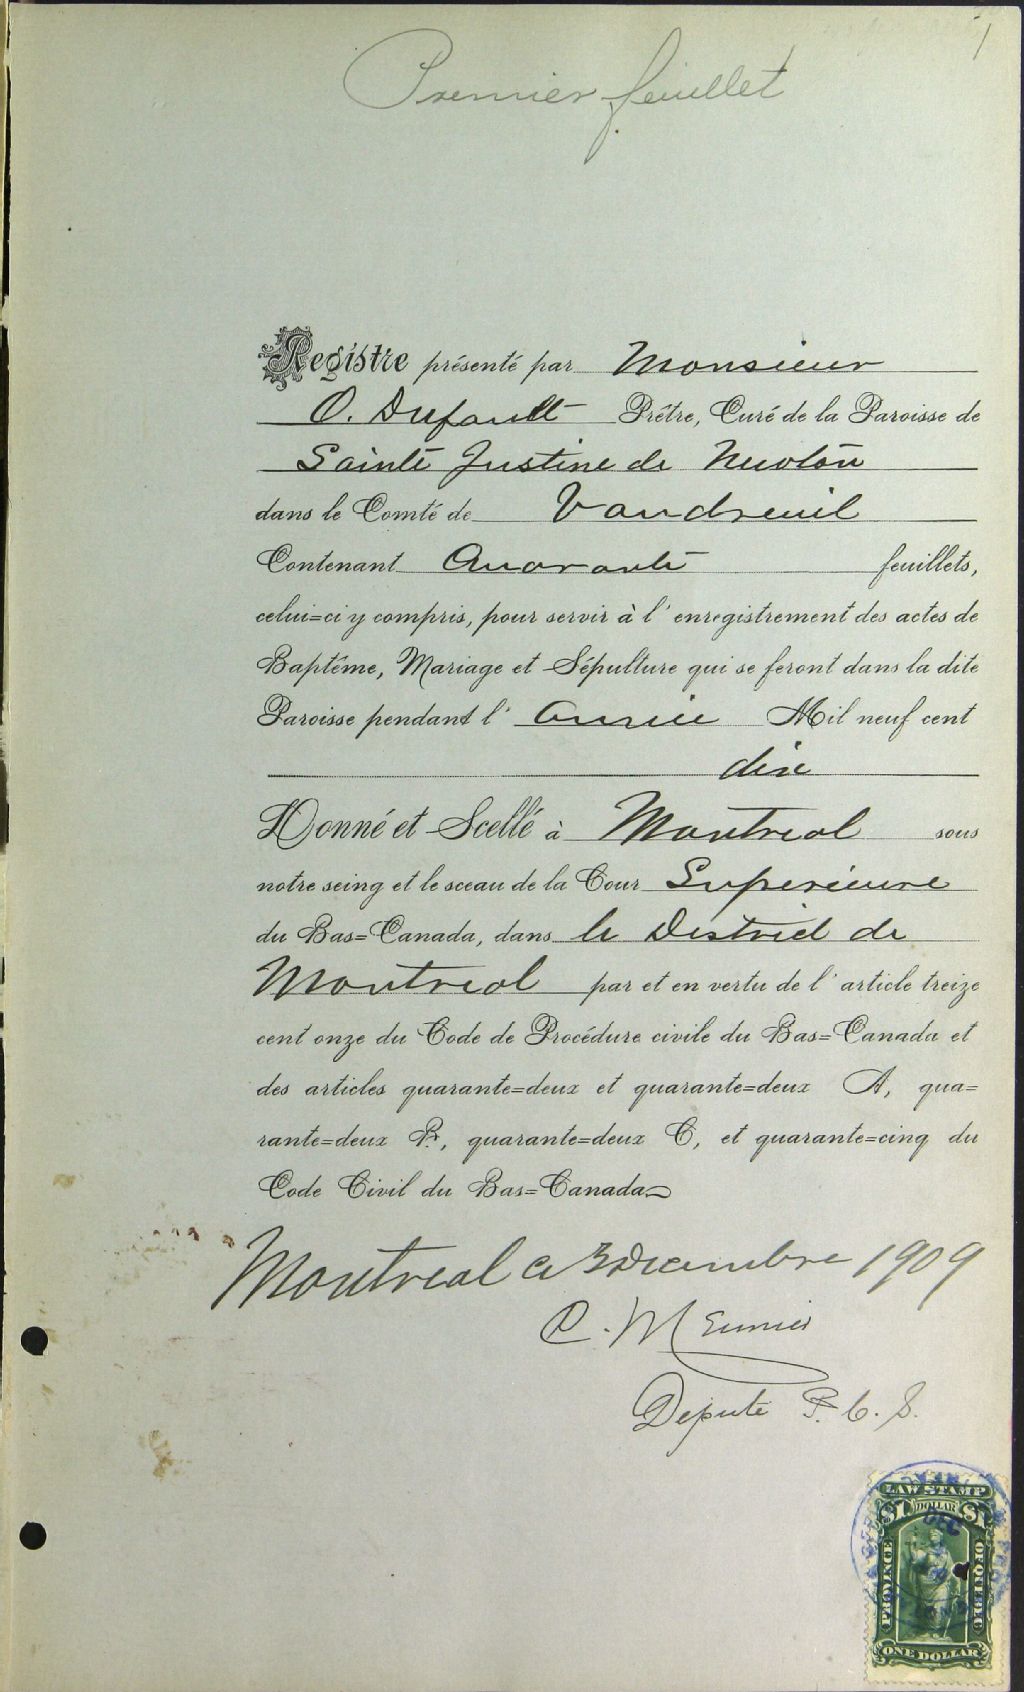 1
Premier feuillet
Registre présenté par Monsieur
O. Dufault Prêtre, Curé de la Paroisse de
Sainte Justine de Newton
dans le Comté de Vaudreuil
Contenant Quarante feuillets,
celui=ci y compris, pour servir à l'enregistrement des actes de
Baptême, Mariage et Sépulture qui se feront dans la dite
Paroisse pendant l'année Mil neuf cent
dix
Donné et Scellé à Montreal sous
notre seing et le sceau de la Cour Superieure
du Bas=Canada, dans le District de
Montreal par et en vertu de l'article treize
cent onze du Code de Procédure civile du Bas=Canada et
des articles quarante=deux et quarante=deux A, qua=
rante=deux B, quarante=deux C, et quarante=cinq du
Code Civil du Bas=Canada
Montreal ce 3 Decembre 1909
C. Meunier
Depute P. C. S.
LAW STAMP
$1 DOLLAR $1
DEC
PROVINCE OF QUEBEC
ONE DOLLAR